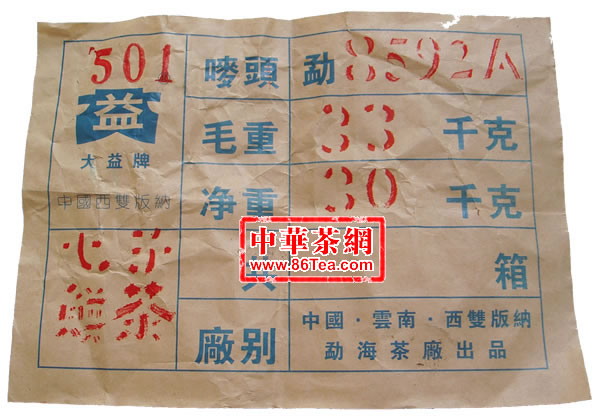 501
益
大益牌
中國西雙版納
茶
嘜頭 勐8592A
毛重 33 千克
净重 30 千克
共 箱
廠别
中國·雲南·西雙版納
勐海茶廠出品
中華茶網
www.86Tea.com